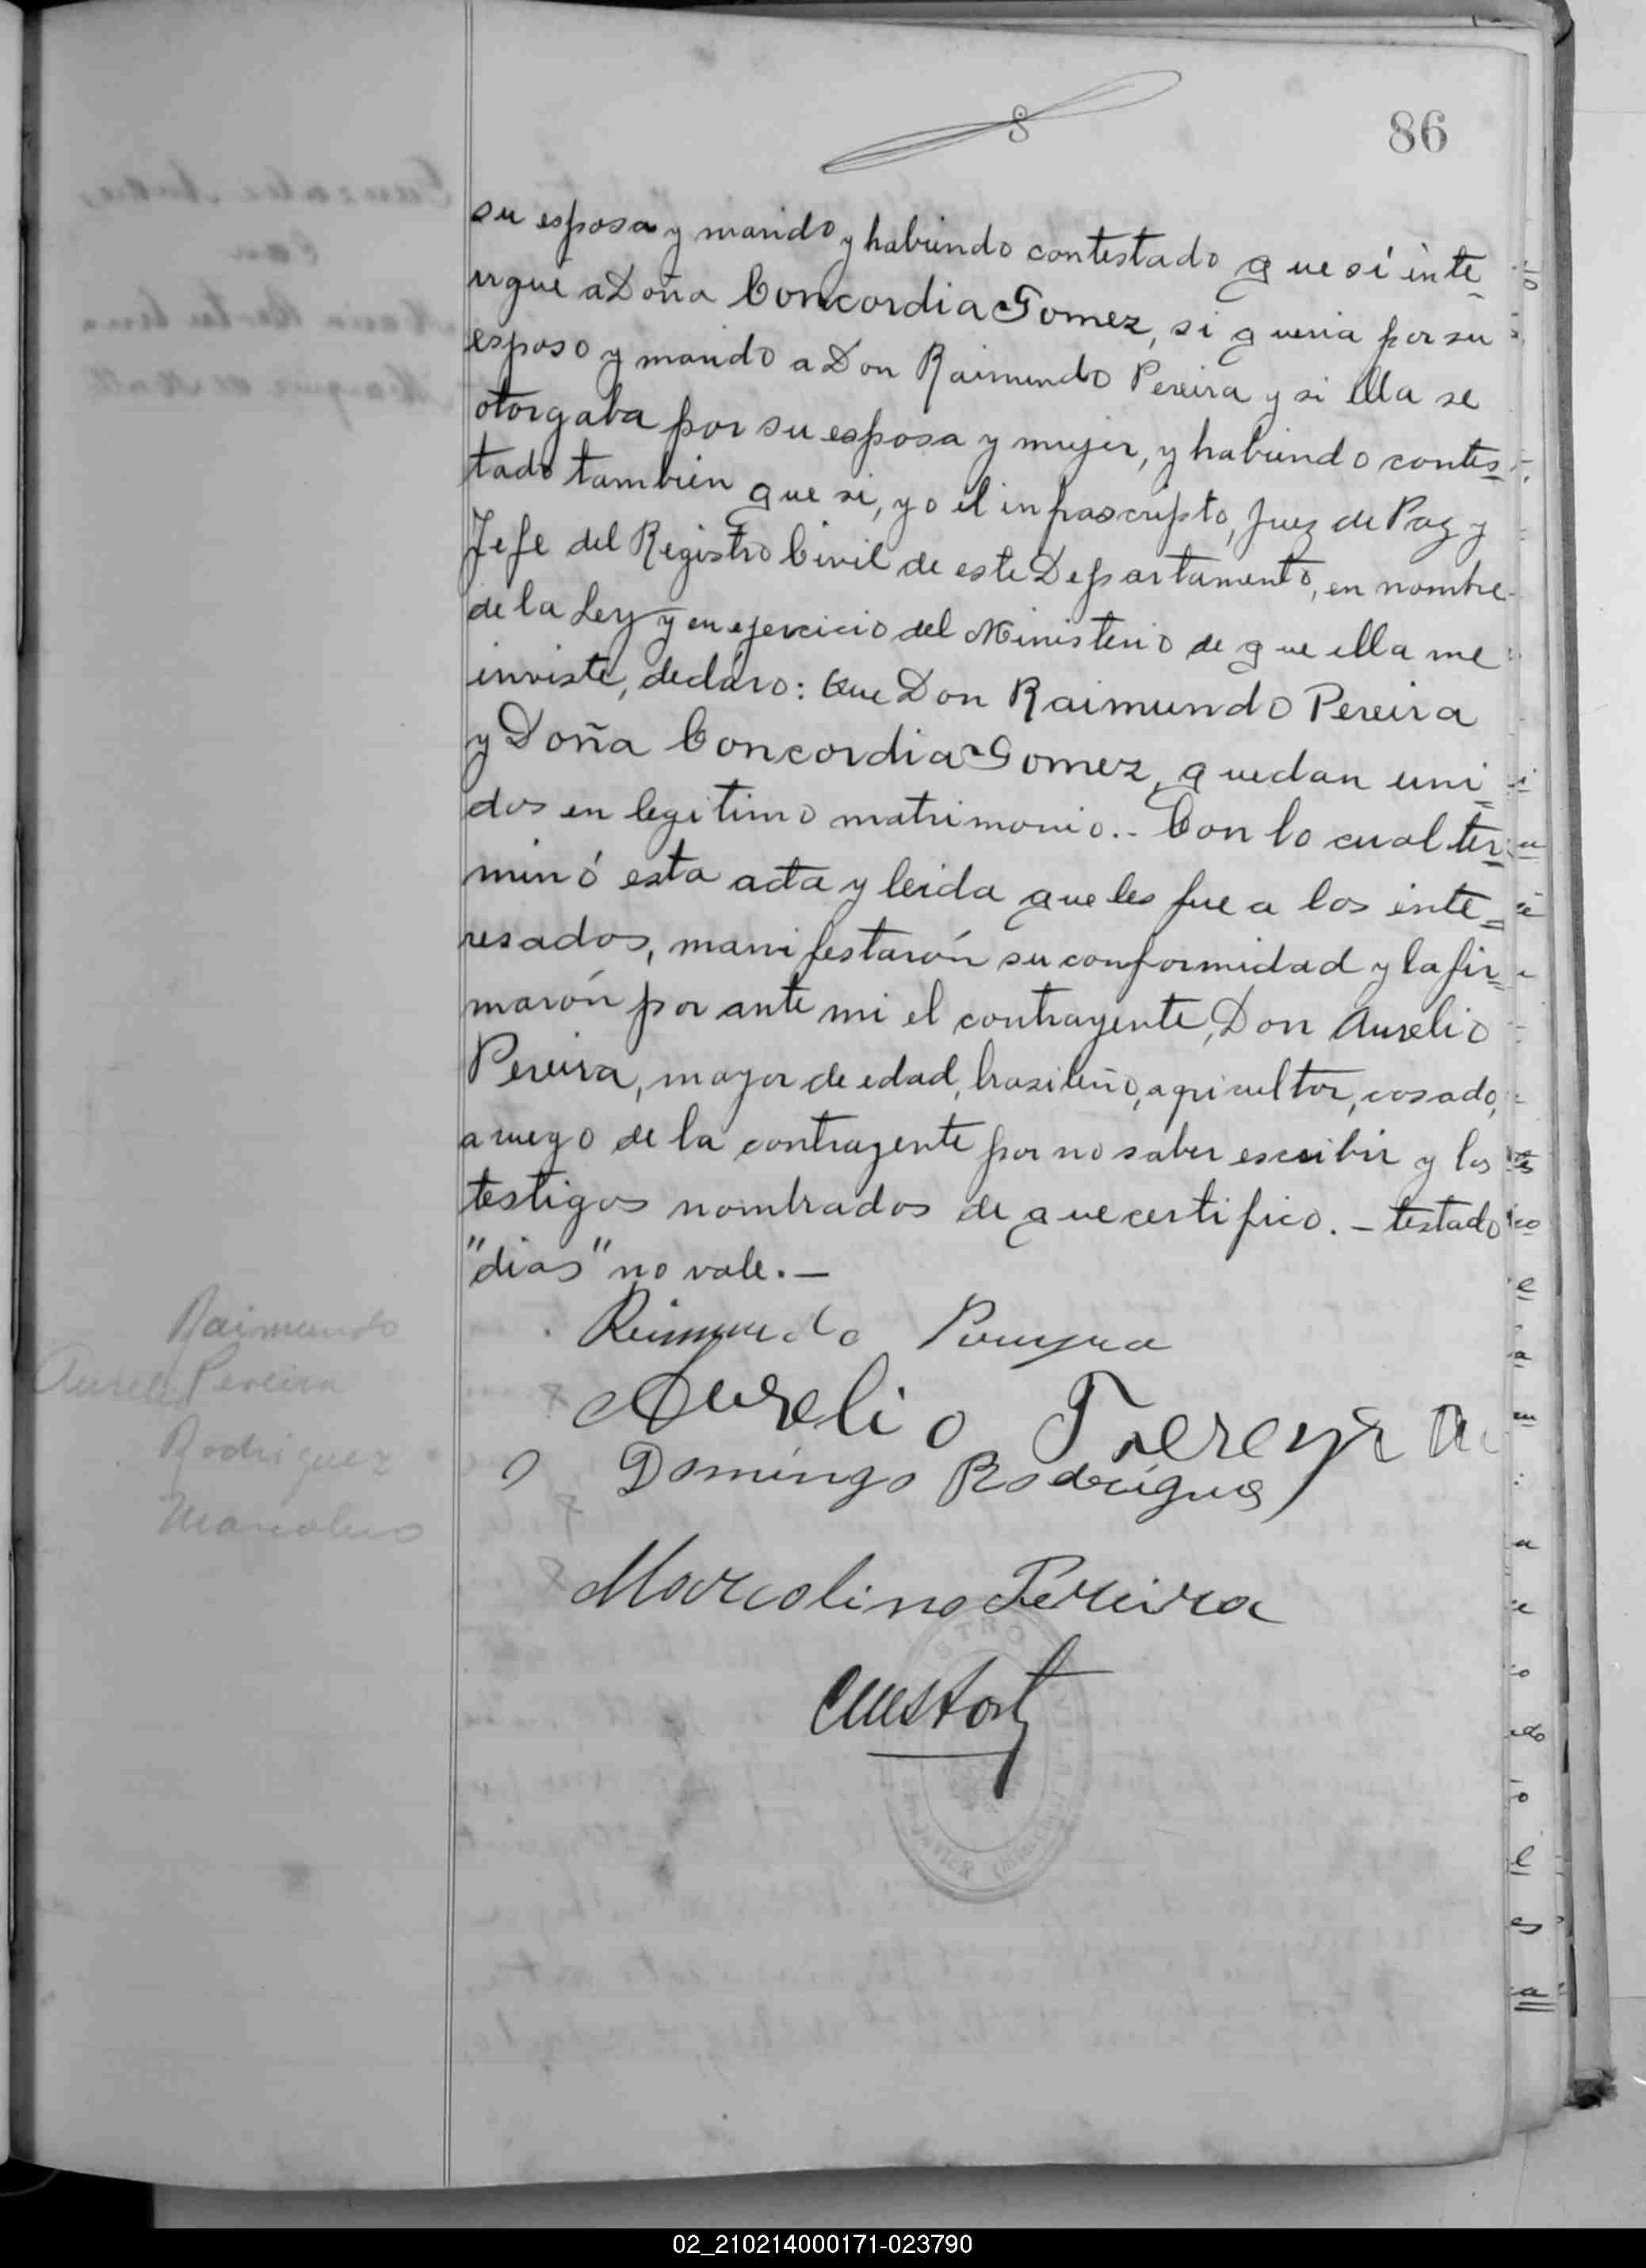 8
86
su esposa y marido y habiendo contestado que sí inte
rrgue a Doña Concordia Gomez, si queria por su
esposo y marido a Don Raimundo Pereira y si ella se
otorgaba por su esposa y mujer, y habiendo contes
tado tambien que si, yo el infrascripto, Juez de Paz y
Jefe del Registro Civil de este Departamento, en nombre
de la Ley y en ejercicio del Ministerio de que ella me
inviste, declaro: Que Don Raimundo Pereira
y Doña Concordia Gomez, quedan uni
dos en legitimo matrimonio.- Con lo cual ter
minó esta acta y leida que les fue a los inte
resados, manifestarón su conformidad y la fir
marón por ante mi el contrayente, Don Aurelio
Pereira, mayor de edad, brasileño, agricultor, casado,
a ruego de la contrayente por no saber escribir y los
testigos nombrados de que certifico. - testado
"dias" no vale. -
Raimundo
Aurel Pereira
Rodriguez
Marcolino
Aurelio Pereyra
Domingo Rodrígues
Marcolino Pereira
02_210214000171-023790